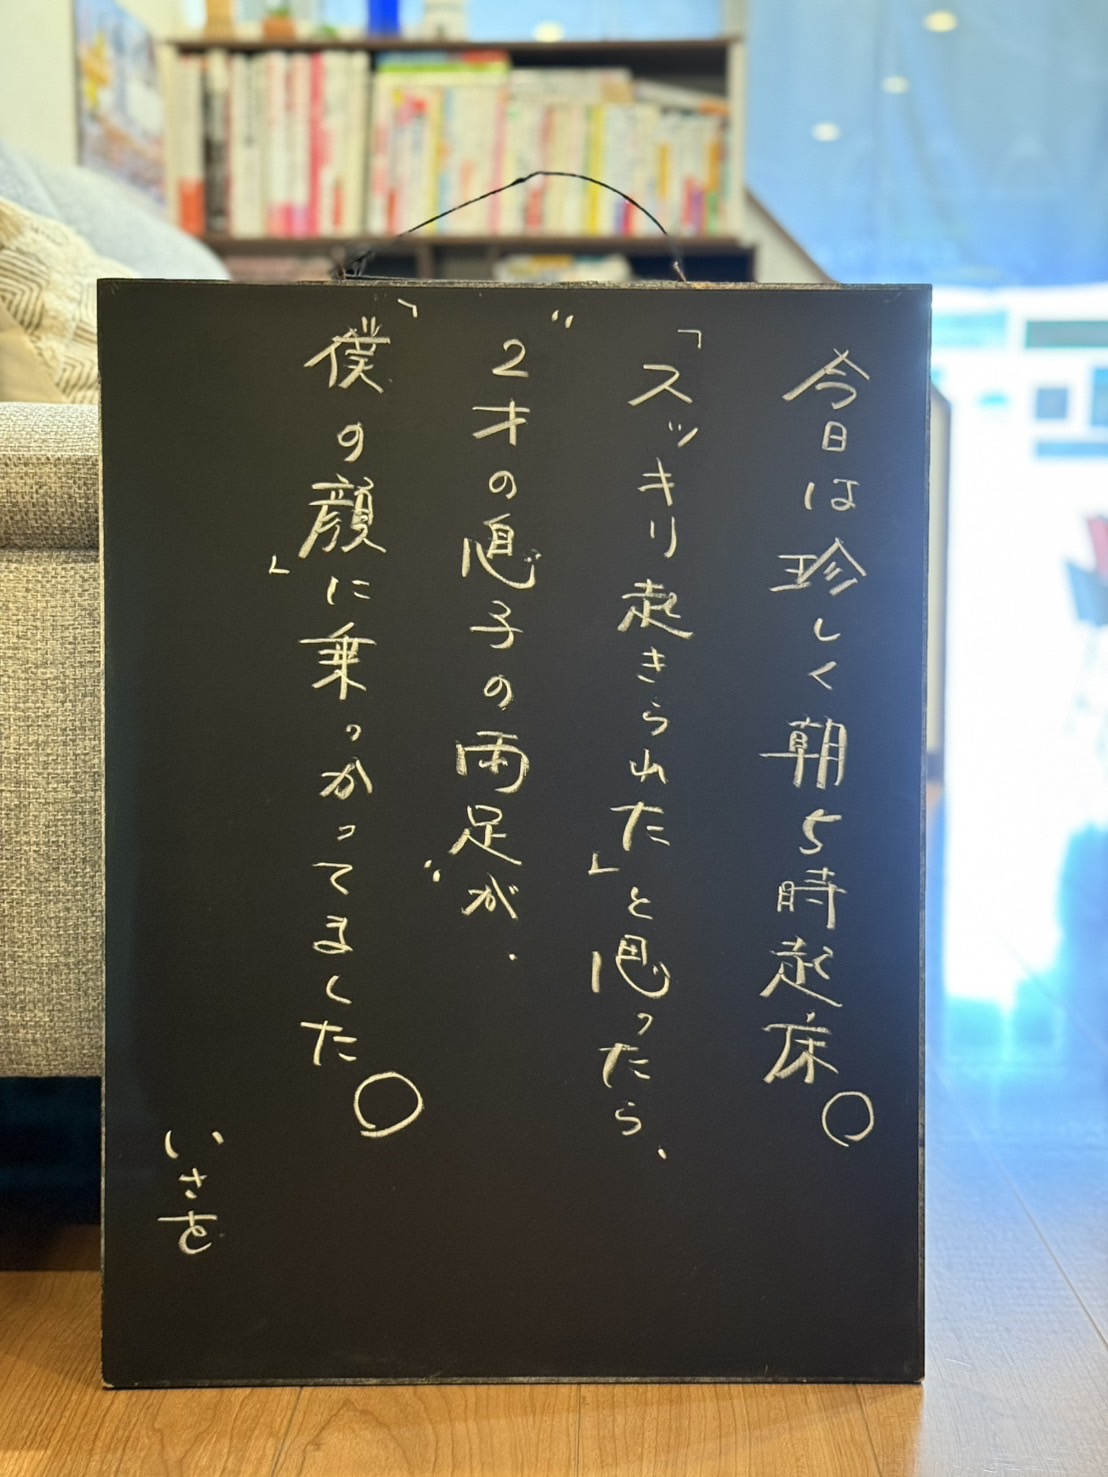 今日は珍しく朝5時起床。
「スッキリ起きられた」と思ったら、
“2才の息子の両足”が、
「僕の顔」に乗っかってました。
いさを